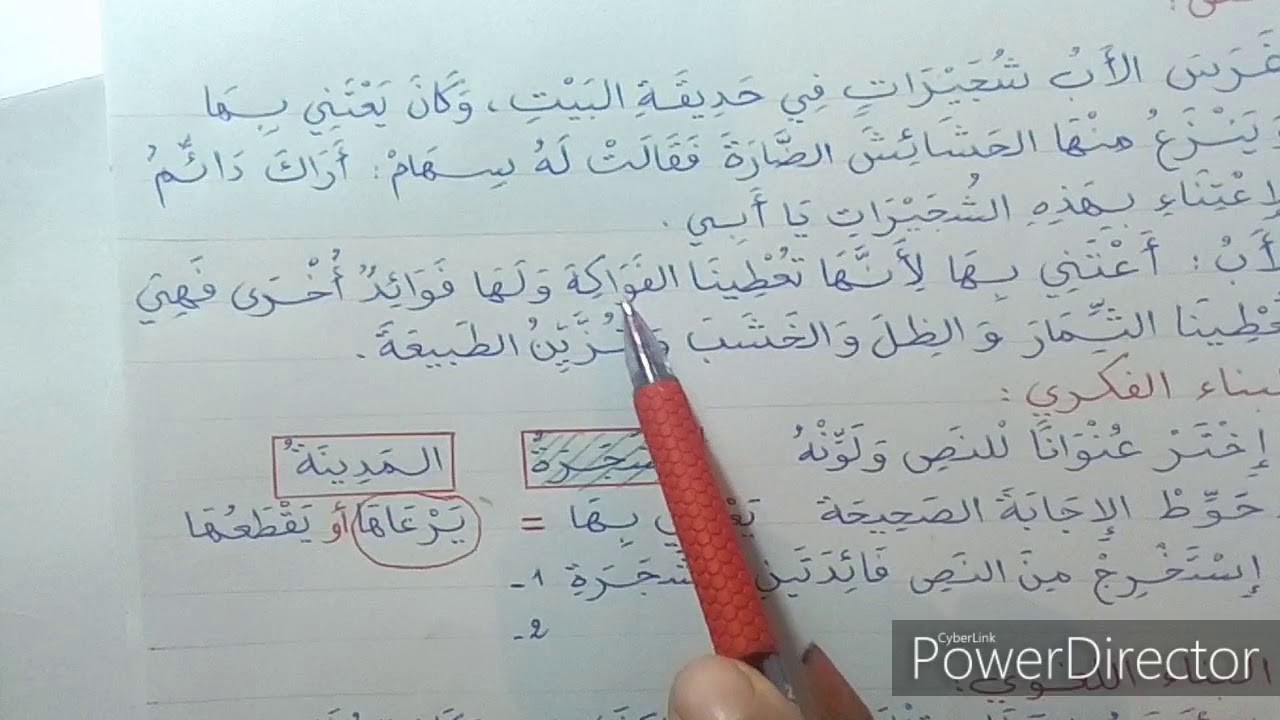 غَرَسَ الأَبُ شُجَيْرَاتٍ فِي حَدِيقَةِ البَيْتِ، وَكَانَ يَعْتَنِي بِهَا
وَيَنْزَعُ مِنْهَا الحَشَائِشَ الضَّارَةَ فَقَالَتْ لَهُ سِهَامْ: أَرَاكَ دَائِمُ
الاِعْتِنَاءِ بِهَذِهِ الشُجَيْرَاتِ يَا أَبِي.
الأَبُ: أَعْتَنِي بِهَا لِأَنَّهَا تُعْطِينَا الفَوَاكِهَ وَلَهَا فَوَائِدٌ أُخْرَى فَهِيَ
تُعْطِينَا الثِّمَارَ وَالظِلَ وَالخَشَبَ وَتُزَّيِنُ الطَبِيعَةَ.
البناء الفكري:
إِخْتَرْ عُنْوَانًا لْلنَصِ وَلَوِّنْهُ شَجَرَةٌ المَدِينَةُ
حَوِّطْ الإِجَابَةَ الصَحِيحَة يَعْتَنِي بِهَا = يَرْعَاهَا أو يَقْطَعُهَا
إِسْتَخْرِجْ مِنَ النَصِ فَائِدَتَيْنِ الشَجَرَةِ 1-
2-
البناء اللغوي:
CyberLink
PowerDirector